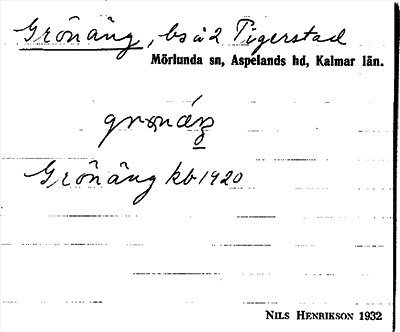 Grönäng, bs å 2 Tigerstad
Mörlunda sn, Aspelands hd, Kalmar län.
Grönäng kb 1920
NILS HENRIKSON 1932